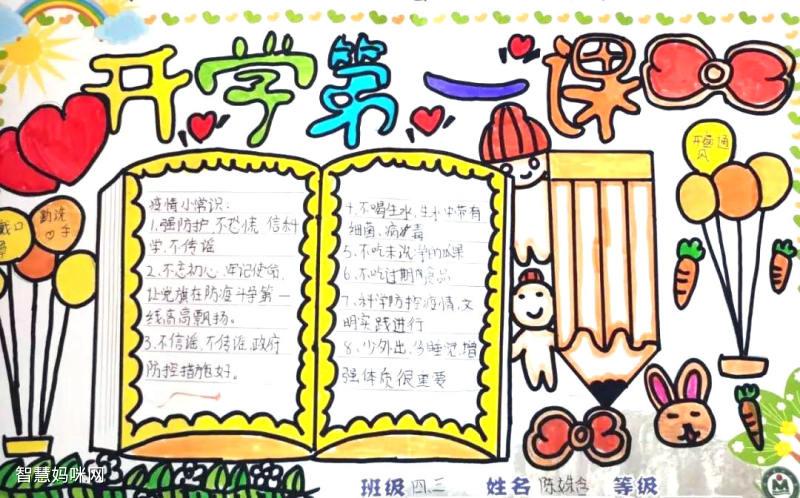 开学第一课
戴口
勤洗
手
开窗通
风
疫情小常识:
1.强防护,不恐慌,信科
学,不传谣
2.不忘初心,牢记使命,
让党旗在防疫斗争第一
线高高飘扬。
3.不信谣,不传谣,政府
防控措施好。
4.不喝生水,生水中带有
细菌、病毒
5.不吃未洗净的瓜果
6.不吃过期的食品
7.科学防控疫情,文
明实践进行
8.少外出,多睡觉,增
强体质很重要
班级 四.三 姓名 陈姝含 等级
智慧妈咪网